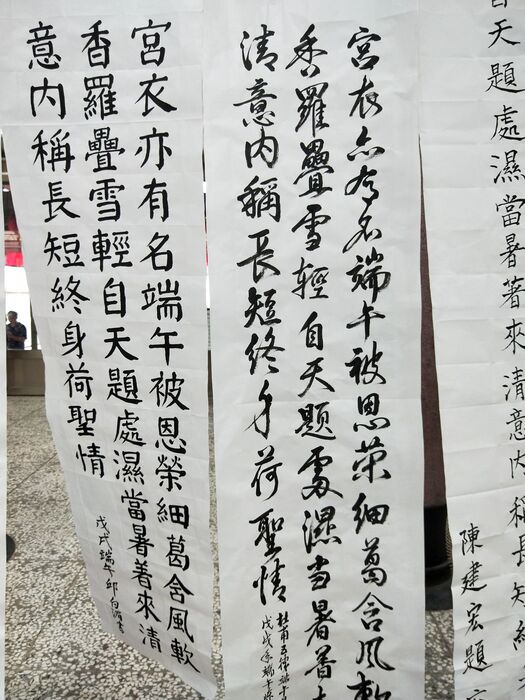 天題處濕當暑著來清意內稱長短終
陳建宏題
宮衣亦有名端午被恩榮細葛含風軟
香羅疊雪輕自天題處濕当暑著
清意內稱長短終身荷聖情
杜甫五律端午
戊戌年端午
宮衣亦有名端午被恩榮細葛含風軟
香羅疊雪輕自天題處濕當暑著來清
意內稱長短終身荷聖情
戊戌端午邱